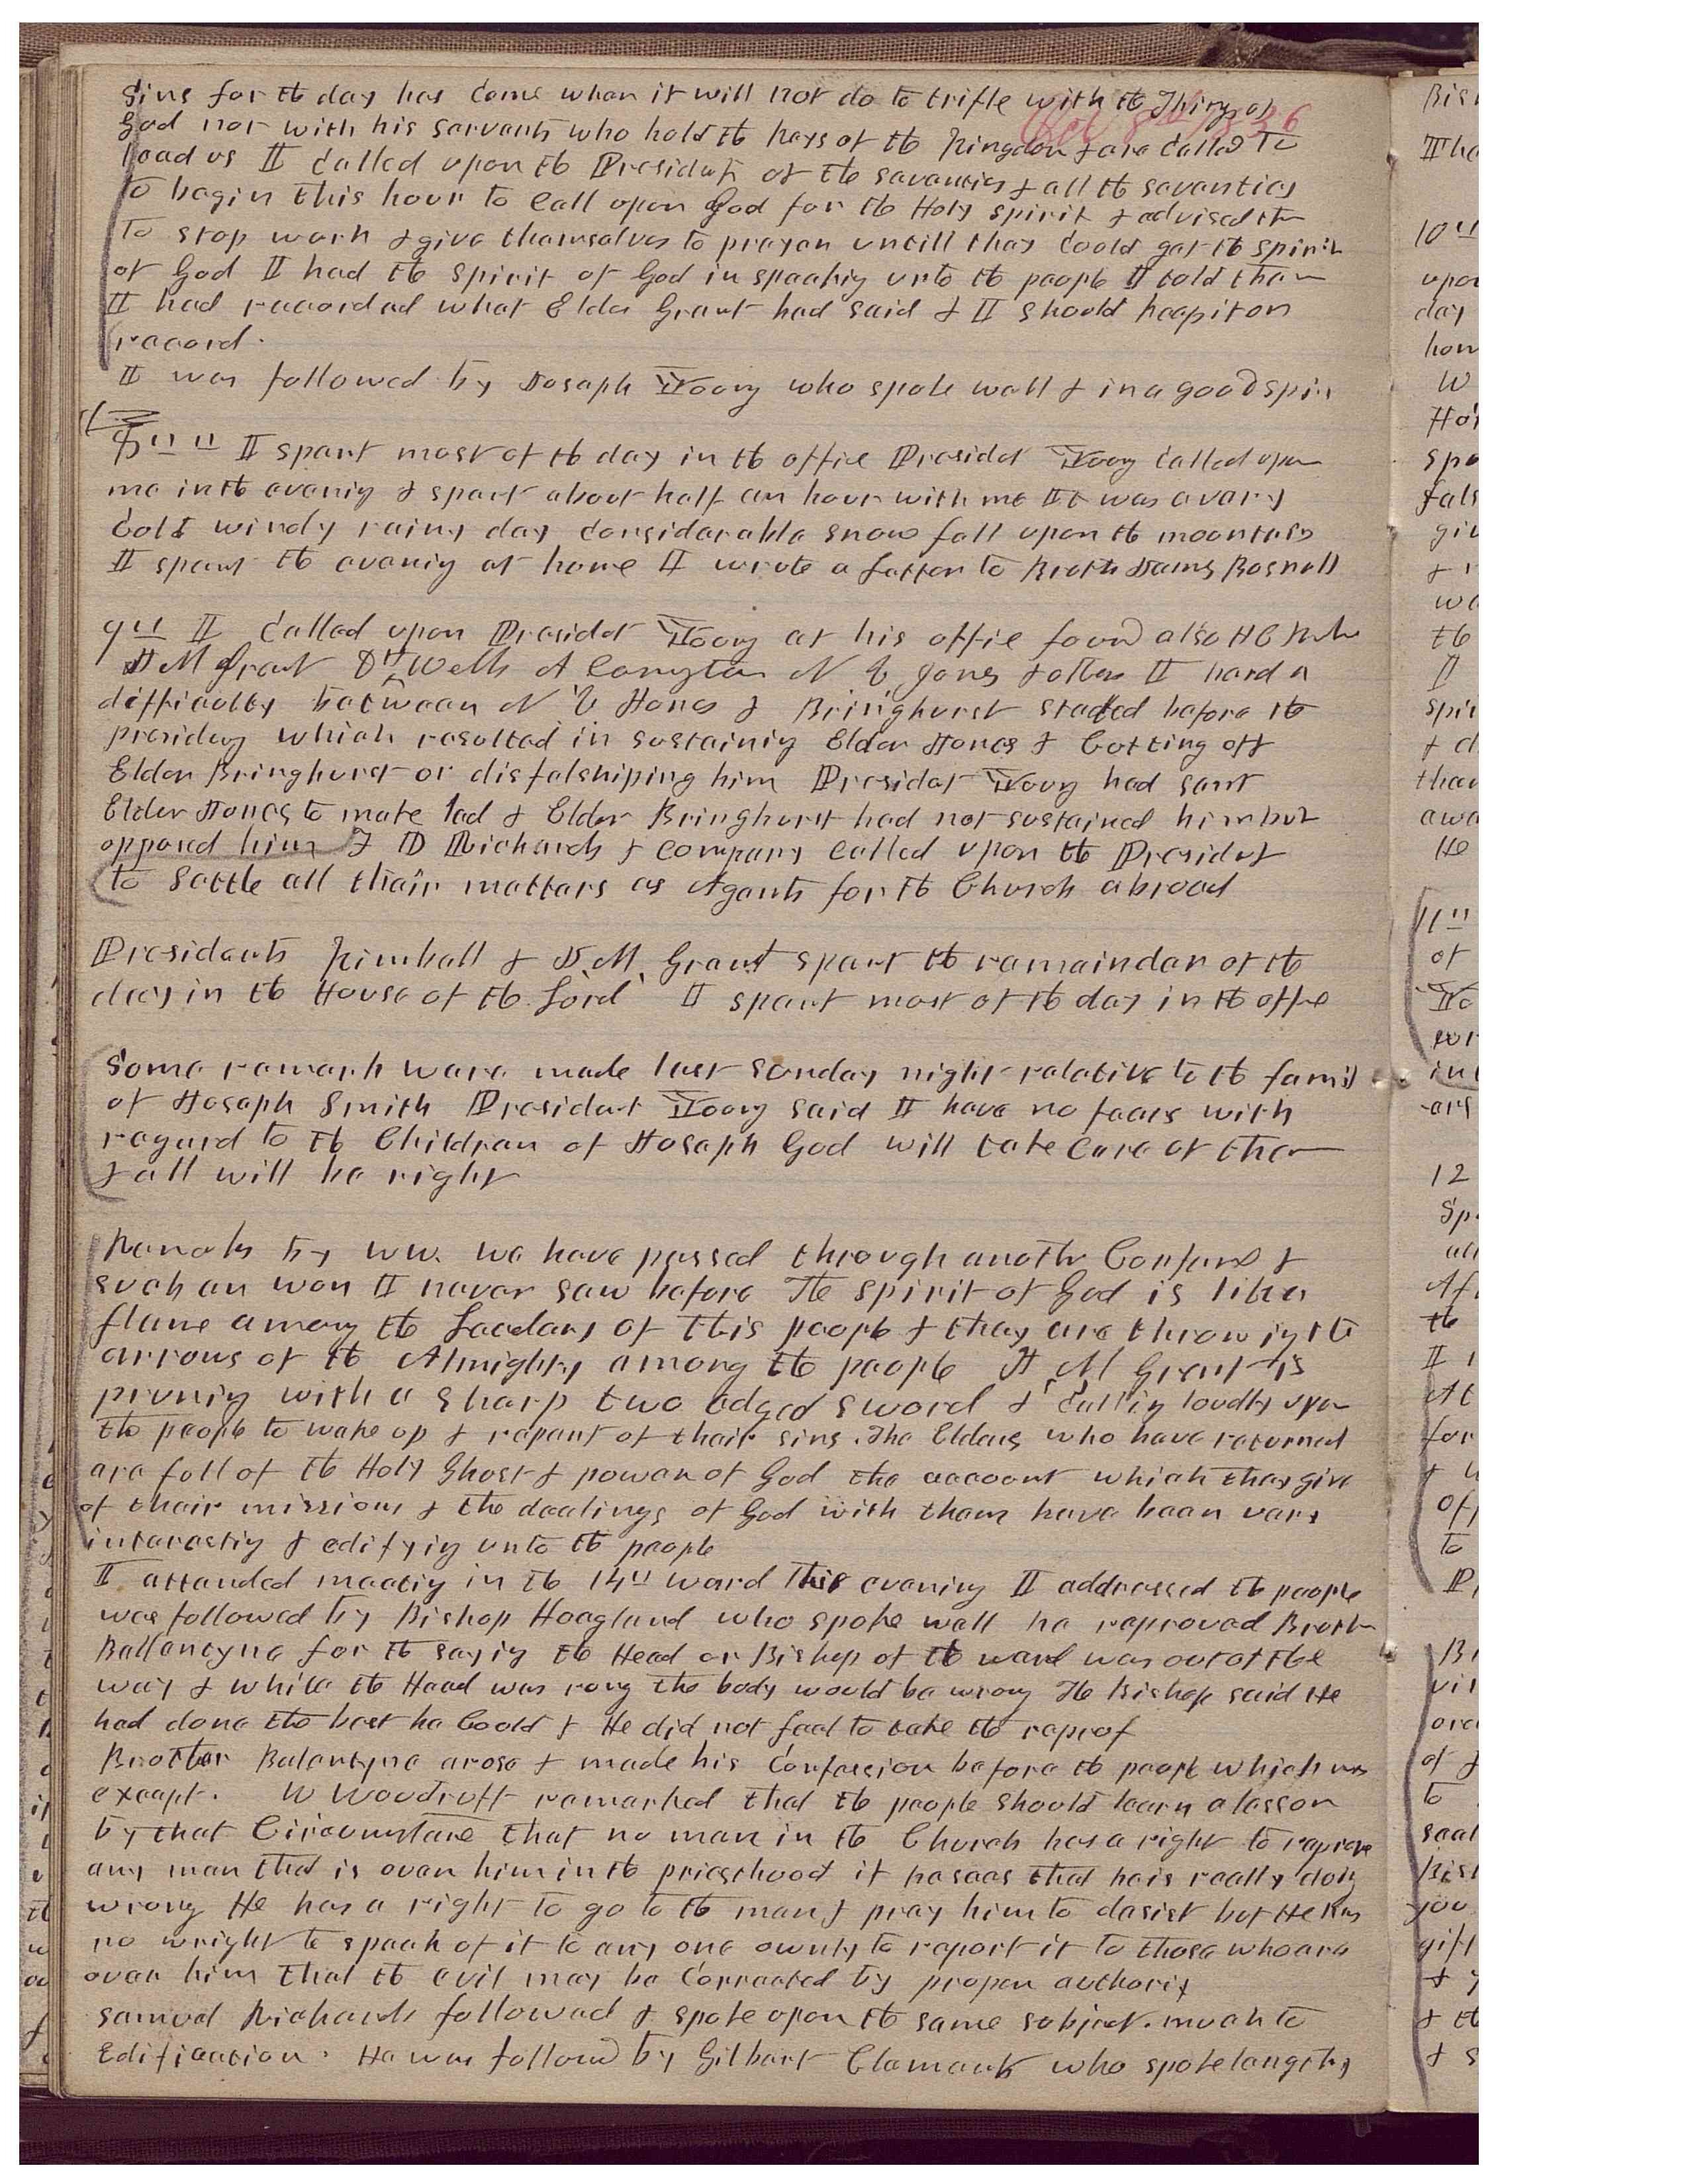 Sins for the day has Come when it will not do to trifle with the Things of
God nor with his servants who hold the keys of the Kingdom & are Called to
lead us I Called upon the Presidents of the seventies & all the seventies
to begin this hour to Call upon God for the Holy spirit & advised them
to stop work & give themselves to prayer untill they Could get the spirit
of God I had the spirit of God in speaking unto the people I told them
I had recorded what Elder Grant had said & I should keep it on
record.
I was followed by Joseph Young who spoke well & in a good spir
8th I spent most of the day in the office Presidet Young Called upon
me in the evening & spent about half an hour with me It was a very
Cold windy rainy day Considerable snow fell upon the mountains
I spent the evening at home I wrote a Letter to Broth James Bosnell
9th I Called upon Presidet Young at his office found also HC
J M Grant D H Wells A Carrington N V Jones & others I heard a
difficulty between N V Jones & Bringhurst stated before the
presidency which resulted in sustaining Elder Jones & Cutting off
Elder Bringhurst or disfelshiping him President Young had sent
Elder Jones to make lead & Elder Bringhurst had not sustained him but
opposed him F D Richards & Company Called upon the Presidet
to Settle all their matters as Agents for the Church abroad
Presidents Kimball & J. M. Grant spent the remainder of the
day in the House of the Lord I spent most of the day in the offie
Some remark were made last Sunday night relative to the famil
of Joseph Smith President Young said I have no fears with
regard to the Children of Joseph God will take Care of them
& all will be right
Remarks by WW. we have passed through anothr Conference &
such an won I never saw before The spirit of God is like a
flame among the Leaders of this people & they are throwing the
arrows of the Almighty among the people J M Grant is
pruning with a sharp two edged sword & Calling loudly upon
the people to wake up & repent of their sins. The Elders who have returned
are full of the Holy Ghost & power of God the account which they give
of their missions & the dealings of God with them have been very
interesting & edifying unto the people
I attended meeting in the 14th ward This evening I addressed the people
was followed by Bishop Hoagland who spoke well he reproved Brother
Ballantyne for the saying the Head or Bishop of the ward was out of the
way & while the Head was rong the body would be wrong The Bishop said He
had done the best he Could & He did not feel to take the reproof
Brother Balantyne arose & made his Confession before the people which was
except. W Woodruff remarked that the people should learn a lesson
by that Circumstance that no man in the Church has a right to reprove
any man that is over him in the priesthood if he sees that he is really doing
wrong He has a right to go to the man & pray him to desist but He has
no wright to speak of it to any one ownly to report it to those who are
over him that the evil may be Corrected by proper authority
Samuel Richards followed & spoke upon the same subject. much to
Edification. He was followed by Gilbert Clements who spoke lengthy